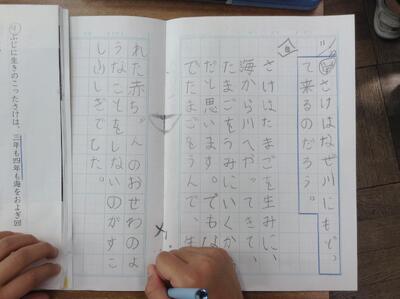 さけはなぜ川にもどっ
て来るのだろう。
さけはたまごを生みに、
海から川へやってきて、
たまごをうみにいくか
だと思います。でもな
でたまごをうんで、生
れた赤ちゃんのおせわのよ
うなことをしないのがすこ
し山しぎでした。
ぶじに生きのこったさけは、三年も四年も海をおよぎ回